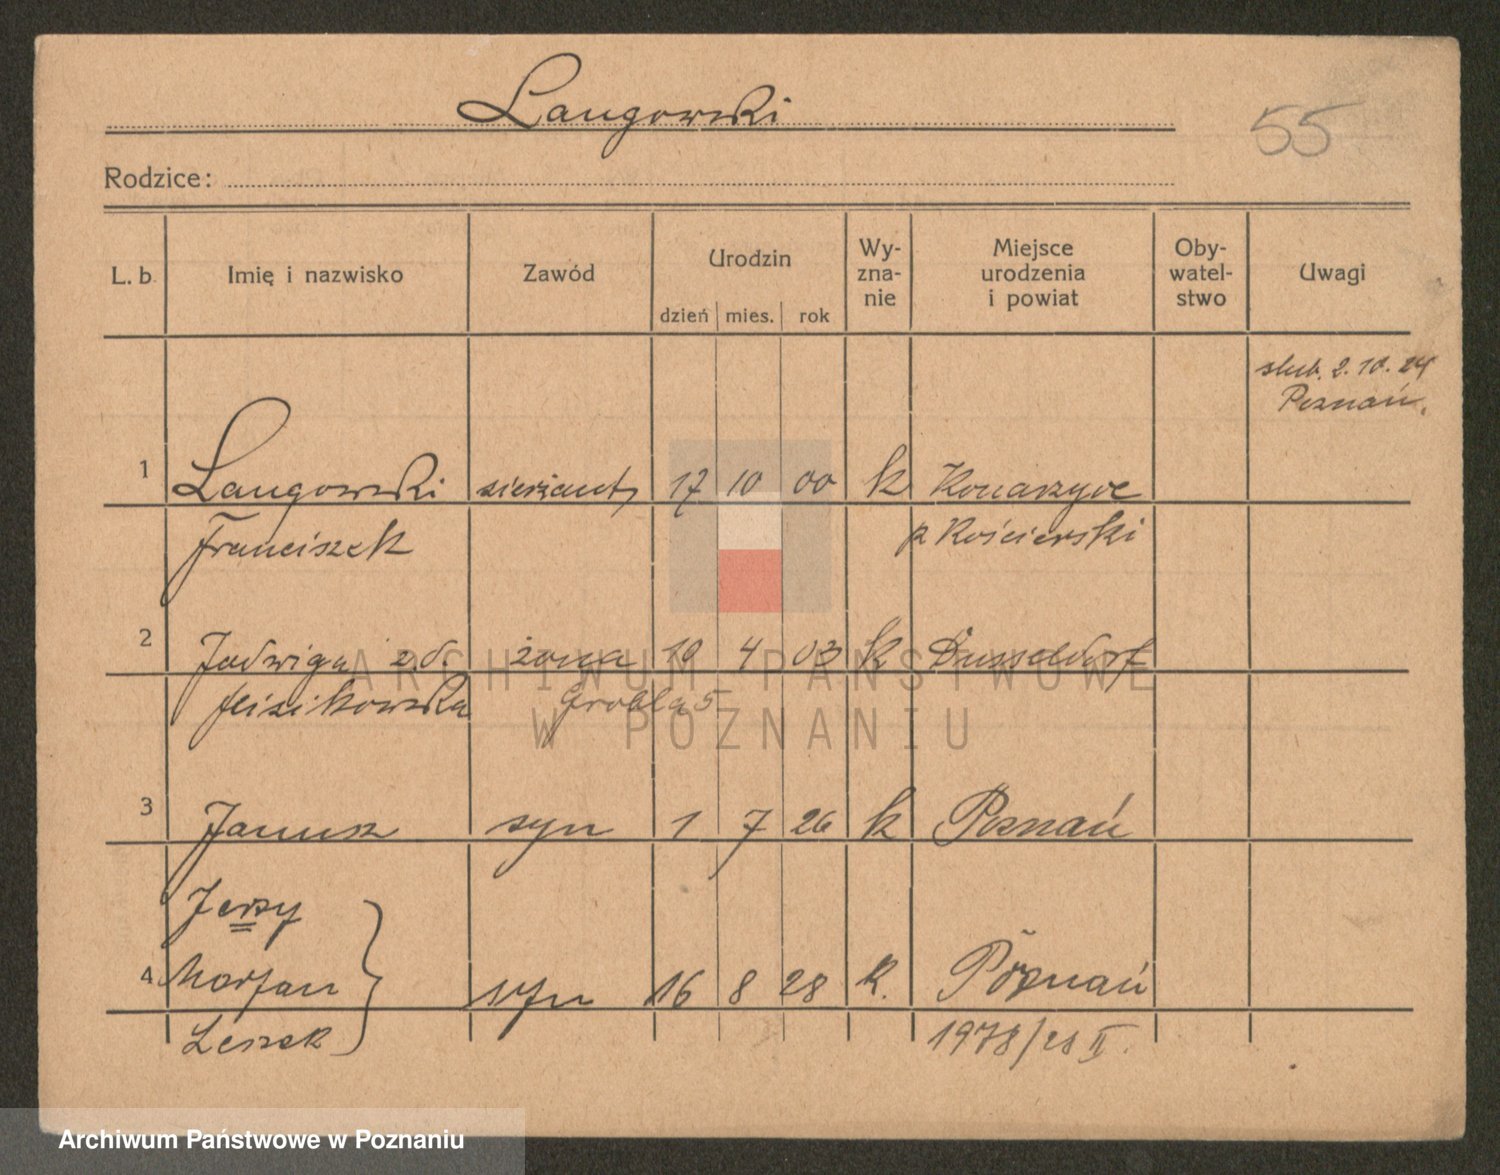 Langowski
55
Rodzice:
L. b. Imię i nazwisko Zawód Urodzin dzień mies. rok Wy-zna-nie Miejsce urodzenia i powiat Oby-watel-stwo Uwagi
ślub. 2. 10. 24
Poznań.
1 Langowski sierżant 17 10 00 k Konarzyce
Franciszek p. Kościerski
2 Jadwiga z d. żona 19 4 03 k Dusseldorf
Grobla 5
3 Janusz syn 1 7 26 k Poznań
Jerzy
4 Marjan syn 16 8 28 k. Poznań
Leszek 1978/28 II.
ARCHIWUM PAŃSTWOWE
W POZNANIU
Archiwum Państwowe w Poznaniu